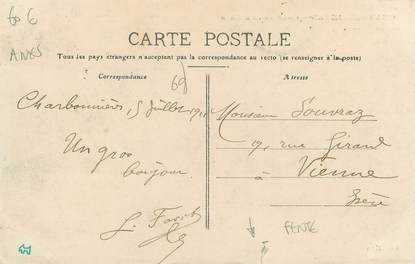 606
ANES
CARTE POSTALE
Tous les pays étrangers n'acceptent pas la correspondance au recto (se renseigner à la poste)
Correspondance
Adresse
69
Charbonnières, 5 Juillet
Un gros
bonjour
Monsieur Souvraz
19, rue Girard
à Vienne
Isère
FENTE